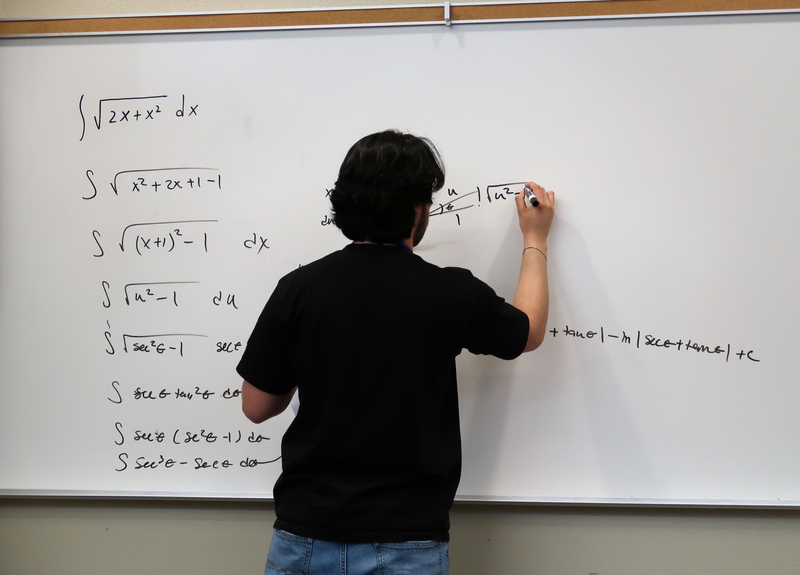 ∫ √(2x+x²) dx
∫ √(x²+2x+1-1)
∫ √((x+1)²-1) dx
∫ √(u²-1) du
∫ √(sec²θ-1) secθ
∫ secθ tan²θ dθ
∫ secθ (sec²θ-1) dθ
∫ sec³θ - secθ dθ
x
du
u
θ
1
√u²-
+ tanθ| - ln |secθ+tanθ| + c